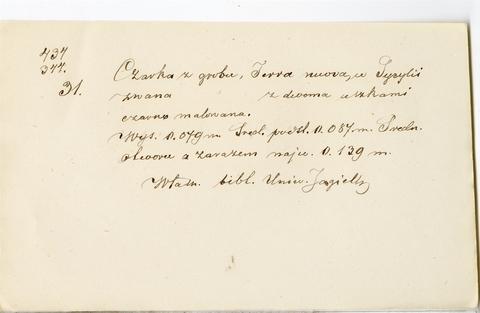 434
344.
31. Czarka z grobu, Terra nuova, w Sycylii
zwana z dwoma uszkami
czarno malowana.
Wys. 0.079 m. Śred. podst. 0.087 m. Średn.
otworu a zarazem najw. 0.139 m.
Własn. bibl. Uniw. Jagiell.